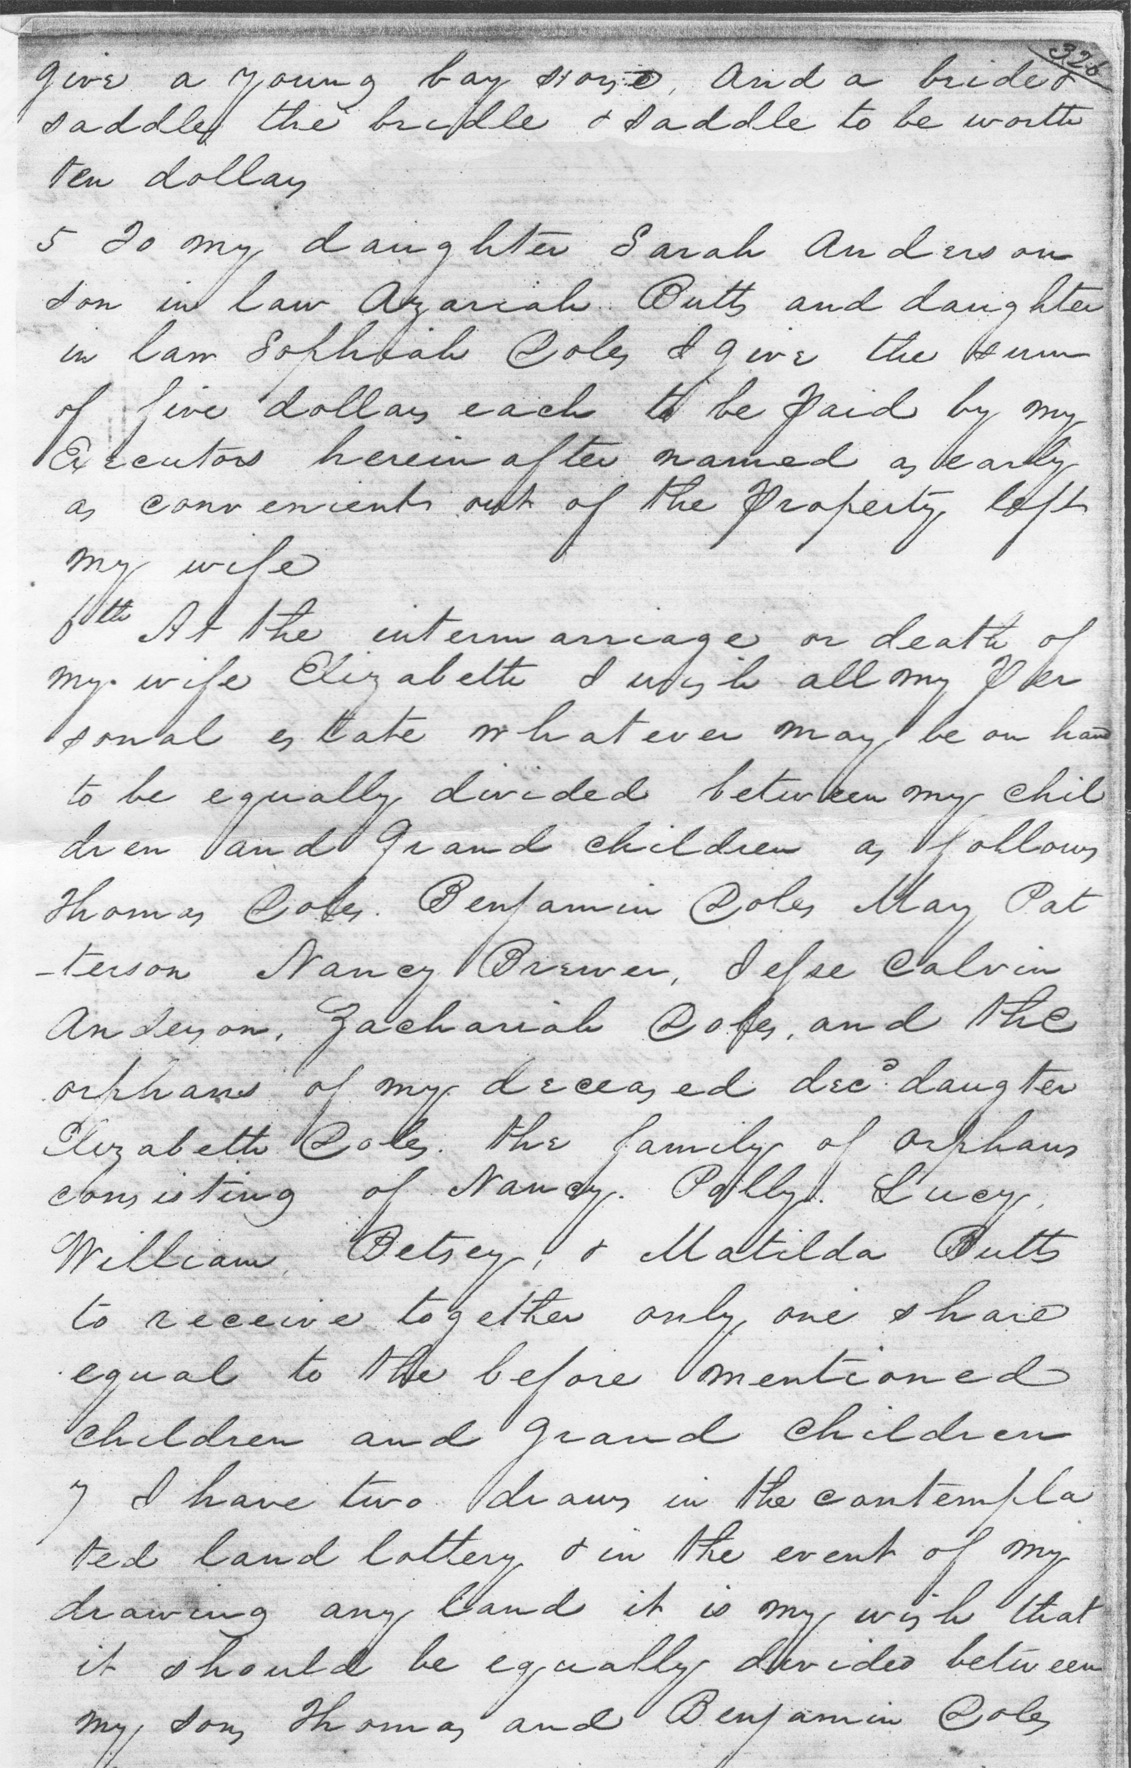 326
give a young bay horse, And a bride &
saddle, the bridle & saddle to be worth
ten dollars
5 To my daughter Sarah Anderson
son in law Azariah Butts and daughter
in law Sophiah Coles I give the sum
of five dollars each to be paid by my
Executors herein after named as early
as convenient out of the Property left
my wife
6th At the intermarriage or death of
my wife Elizabeth I wish all my Per
sonal estate whatever may be on hand
to be equally divided between my chil
dren and Grand children as follows
Thomas Coles. Benjamin Coles May Pat
-terson Nancy Brewer, Jesse Calvin
Anderson, Zachariah Coles, and the
orphans of my deceased decd. daugter
Elizabeth Coles. the family of orphans
consisting of Nancy. Polly. Lucy,
William, Betsey, & Matilda Butts
to receive together only one share
equal to the before mentioned
children and grand children
7 I have two draws in the contempla
ted land lottery & in the event of my
drawing any land it is my wish that
it should be equally divided between
my sons Thomas and Benjamin Coles